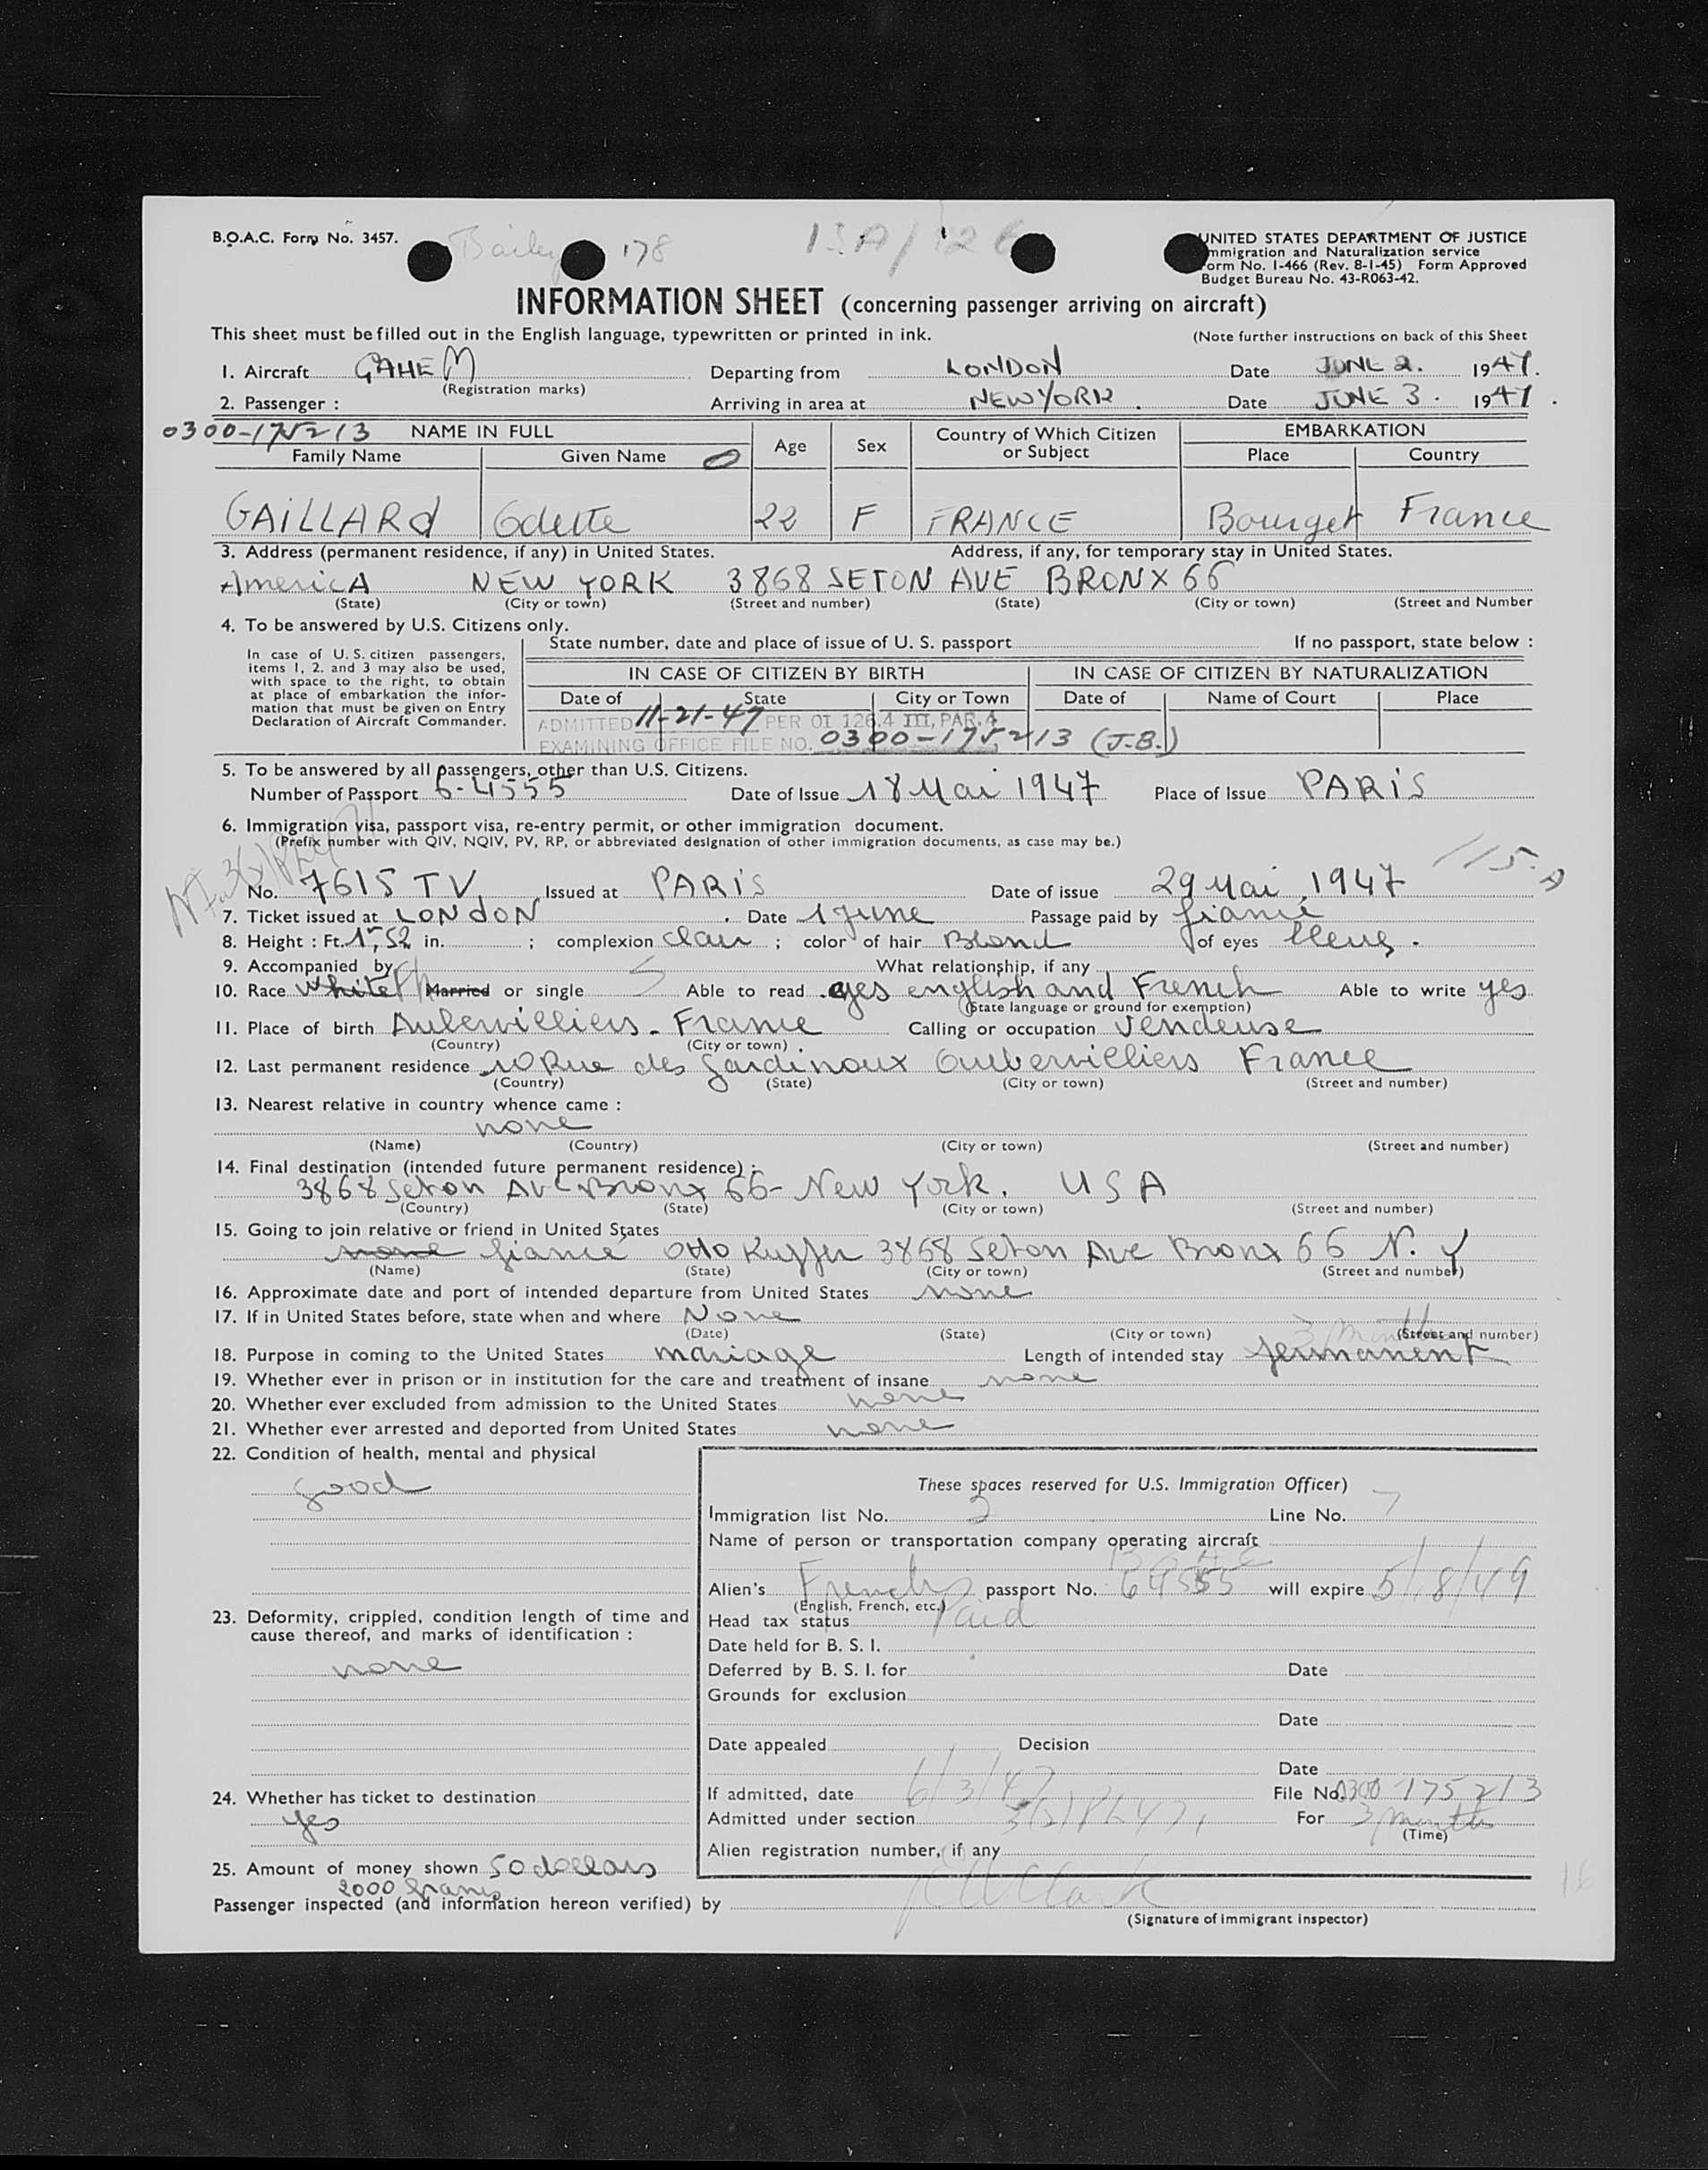 B.O.A.C. Form No. 3457.
Bailey 178
13A/326
UNITED STATES DEPARTMENT OF JUSTICE
Immigration and Naturalization service
Form No. I-466 (Rev. 8-1-45) Form Approved
Budget Bureau No. 43-R063-42.
INFORMATION SHEET (concerning passenger arriving on aircraft)
This sheet must be filled out in the English language, typewritten or printed in ink. (Note further instructions on back of this Sheet
1. Aircraft GAHEM Departing from LONDON Date JUNE 2. 1947.
(Registration marks)
2. Passenger : Arriving in area at NEW YORK . Date JUNE 3. 1947.
0300-175213 NAME IN FULL Age Sex Country of Which Citizen or Subject EMBARKATION
Family Name Given Name Place Country
GAILLARd Odette 22 F FRANCE Bourget France
3. Address (permanent residence, if any) in United States. Address, if any, for temporary stay in United States.
AmericA NEW YORK 3868 SETON AVE BRONX 66
(State) (City or town) (Street and number) (State) (City or town) (Street and Number
4. To be answered by U.S. Citizens only.
In case of U.S. citizen passengers, items 1, 2. and 3 may also be used, with space to the right, to obtain at place of embarkation the information that must be given on Entry Declaration of Aircraft Commander.
State number, date and place of issue of U. S. passport If no passport, state below :
IN CASE OF CITIZEN BY BIRTH IN CASE OF CITIZEN BY NATURALIZATION
Date of State City or Town Date of Name of Court Place
ADMITTED 11-21-47 PER OI 126.4 III, PAR. 4
EXAMINING OFFICE FILE NO. 0300-175213 (J.B.)
5. To be answered by all passengers, other than U.S. Citizens.
Number of Passport 6-4555 Date of Issue 18 Mai 1947 Place of Issue PARIS
6. Immigration visa, passport visa, re-entry permit, or other immigration document.
(Prefix number with QIV, NQIV, PV, RP, or abbreviated designation of other immigration documents, as case may be.)
115-A
No. 7615 TV Issued at PARIS Date of issue 29 Mai 1947
7. Ticket issued at LONdON . Date 1 June Passage paid by fiancé
8. Height : Ft. 1m,52 in. ; complexion clair ; color of hair Blond of eyes bleus .
9. Accompanied by What relationship, if any
10. Race White Married or single S Able to read yes english and French Able to write yes
(State language or ground for exemption)
11. Place of birth Aubervilliers - France Calling or occupation vendeuse
(Country) (City or town)
12. Last permanent residence 10 Rue des Gardinoux Aubervilliers France
(Country) (State) (City or town) (Street and number)
13. Nearest relative in country whence came :
none
(Name) (Country) (City or town) (Street and number)
14. Final destination (intended future permanent residace) :
3868 Seton Ave Bronx 66 - New York. USA
(Country) (State) (City or town) (Street and number)
15. Going to join relative or friend in United States
none fiancé Otto Kuffer 3868 Seton Ave Bronx 66 N. Y
(Name) (State) (City or town) (Street and number)
16. Approximate date and port of intended departure from United States none
17. If in United States before, state when and where None
(Date) (State) (City or town) (Street and number)
3 months
18. Purpose in coming to the United States mariage Length of intended stay permanent
19. Whether ever in prison or in institution for the care and treatment of insane none
20. Whether ever excluded from admission to the United States none
21. Whether ever arrested and deported from United States none
22. Condition of health, mental and physical
good
23. Deformity, crippled, condition length of time and cause thereof, and marks of identification :
none
24. Whether has ticket to destination
yes
25. Amount of money shown 50 dollars
2000 francs
These spaces reserved for U.S. Immigration Officer)
Immigration list No. 2 Line No. 7
Name of person or transportation company operating aircraft
BOAC
Alien's French passport No. 64555 will expire 5/18/49
(English, French, etc.)
Head tax status Paid
Date held for B. S. I.
Deferred by B. S. I. for Date
Grounds for exclusion
Date
Date appealed Decision
Date
If admitted, date 6/3/47 File No. 0300 175213
Admitted under section 3(2) P647, For 3 months
(Time)
Alien registration number, if any
Passenger inspected (and information hereon verified) by
(Signature of immigrant inspector)
16